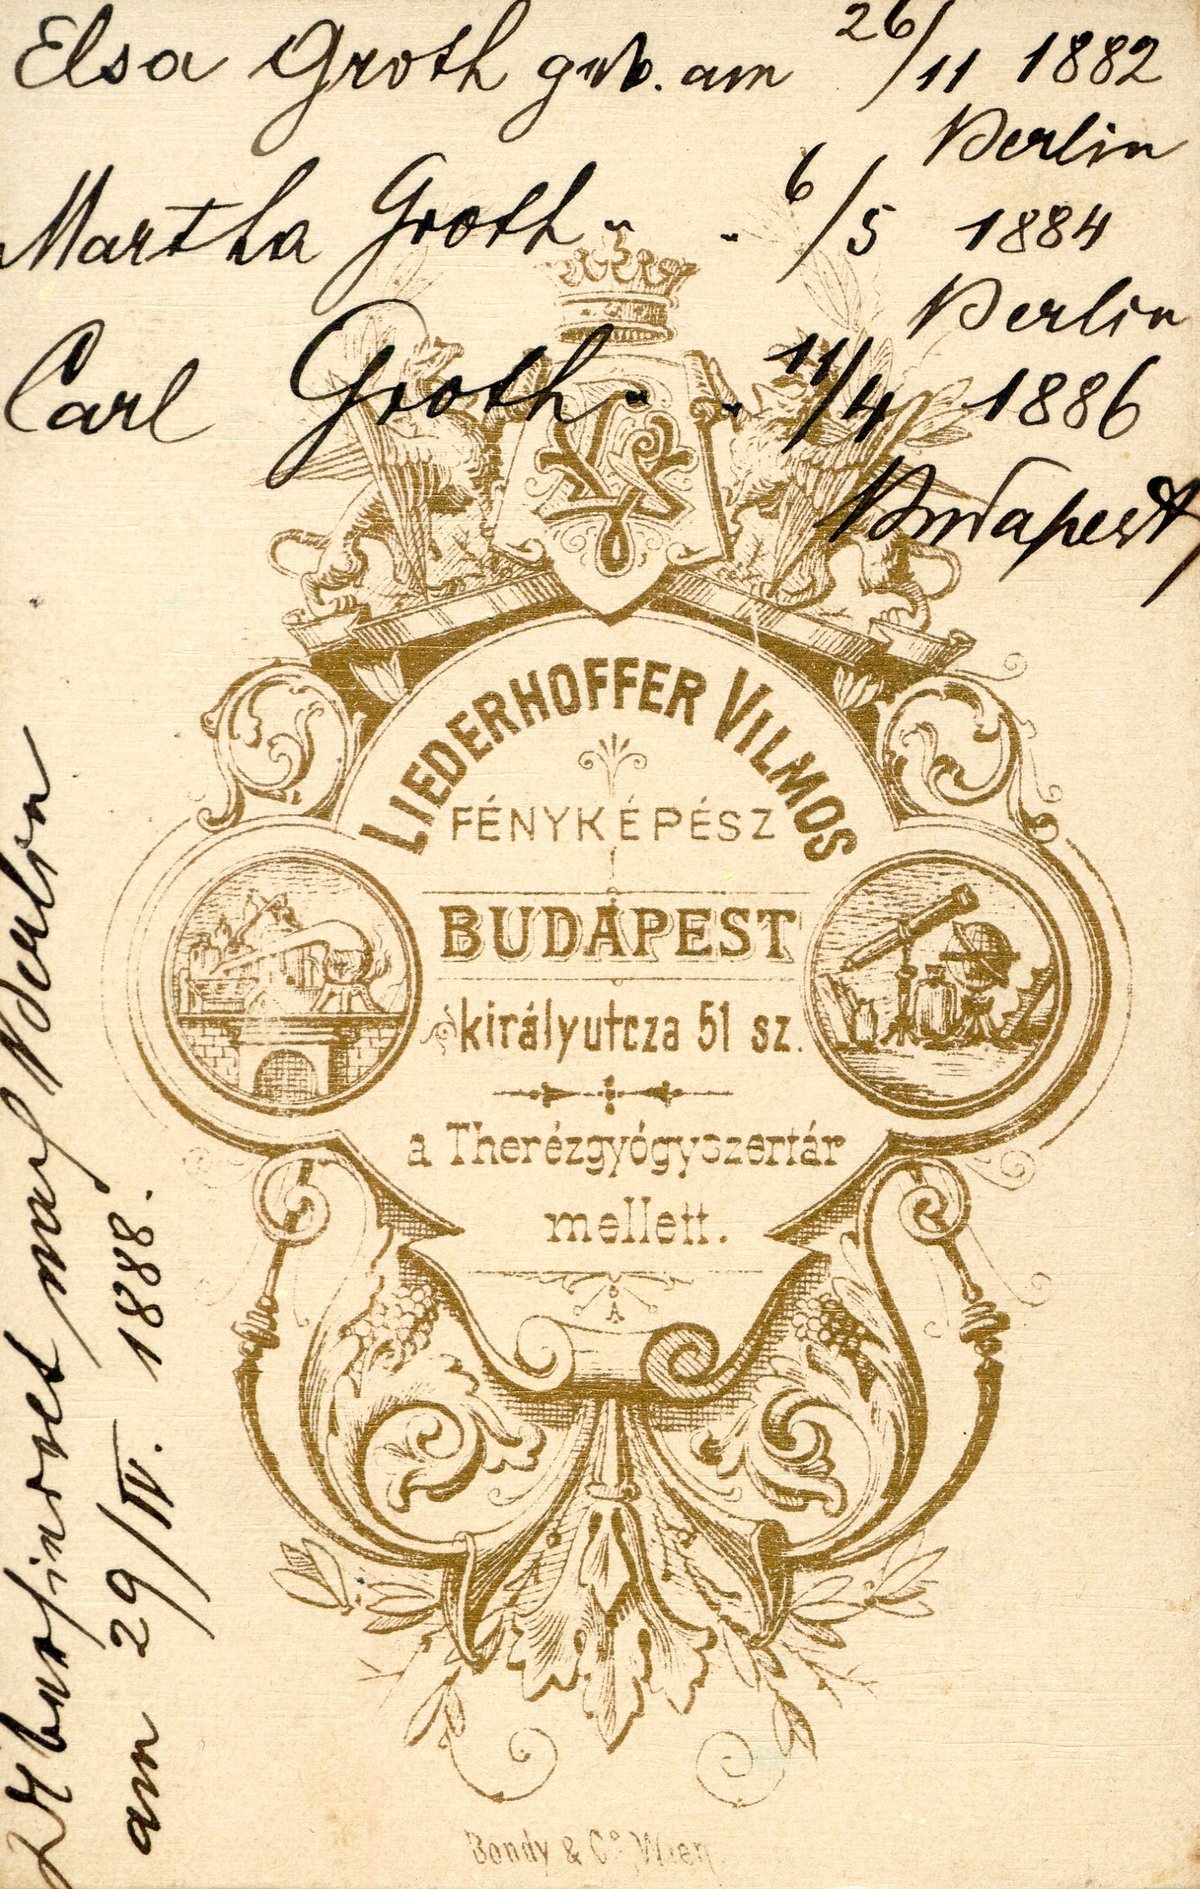 Elsa Groth geb. am 26/11 1882
Berlin
Martha Groth " " 6/5 1884
Berlin
Carl Groth " " 11/4 1886
Budapest
LIEDERHOFFER VILMOS
FÉNYKÉPÉSZ
BUDAPEST
királyutcza 51 sz.
a Therézgyógyszertár
mellett.
Bondy & Co Wien
Übersiedelt nach Berlin
am 29/IV. 1888.